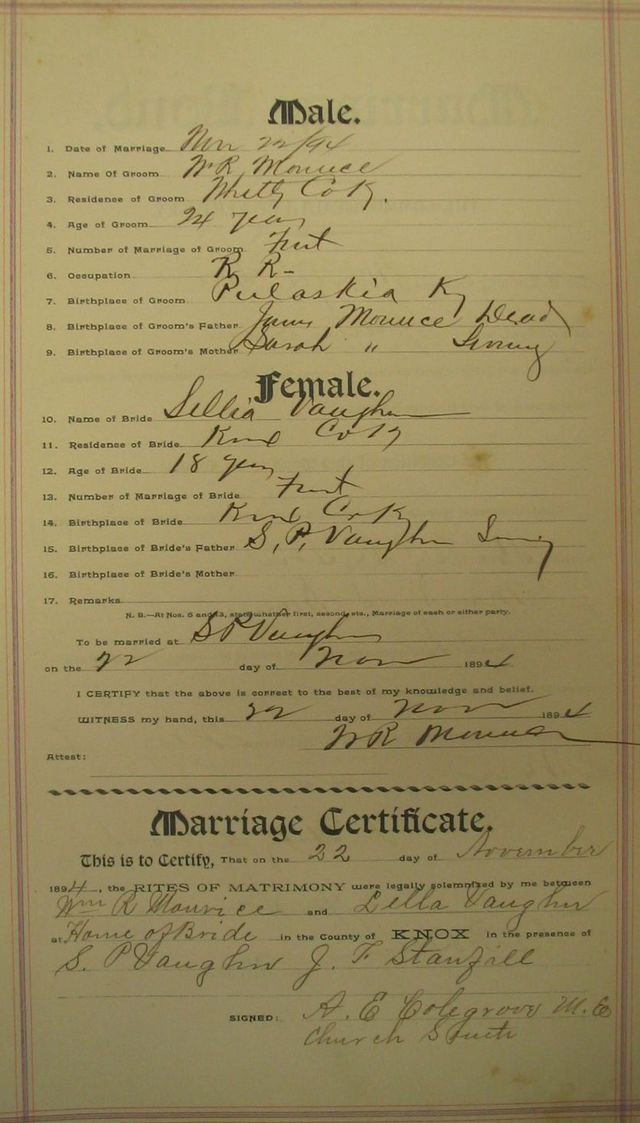 Male.
1. Date of Marriage Nov 22/94
2. Name Of Groom W R Mourice
3. Residence of Groom Whitly Co Ky.
4. Age of Groom 24 years
5. Number of Marriage of Groom First
6. Occupation R R
7. Birthplace of Groom Pulaskia Ky
8. Birthplace of Groom's Father James Mourice Dead
9. Birthplace of Groom's Mother Sarah " Living
Female.
10. Name of Bride Lellia Vaughn
11. Residence of Bride Knox Co Ky
12. Age of Bride 18 years
13. Number of Marriage of Bride First
14. Birthplace of Bride Knox Co Ky
15. Birthplace of Bride's Father S. P. Vaughn Living
16. Birthplace of Bride's Mother
17. Remarks
N. B.—At Nos. 5 and 13, state whether first, second, etc., Marriage of each or either party.
To be married at S P Vaughn
on the 22 day of Nov 1894
I CERTIFY that the above is correct to the best of my knowledge and belief.
WITNESS my hand, this 22 day of Nov 1894
W R Mourice
Attest:
Marriage Certificate.
This is to Certify, That on the 22 day of November
1894, the RITES OF MATRIMONY were legally solemnized by me between
Wm R Mourice and Lella Vaughn
at Home of Bride in the County of KNOX in the presence of
S. P Vaughn J. F Stanfill
SIGNED: A. E Colegrove M. E
Church South